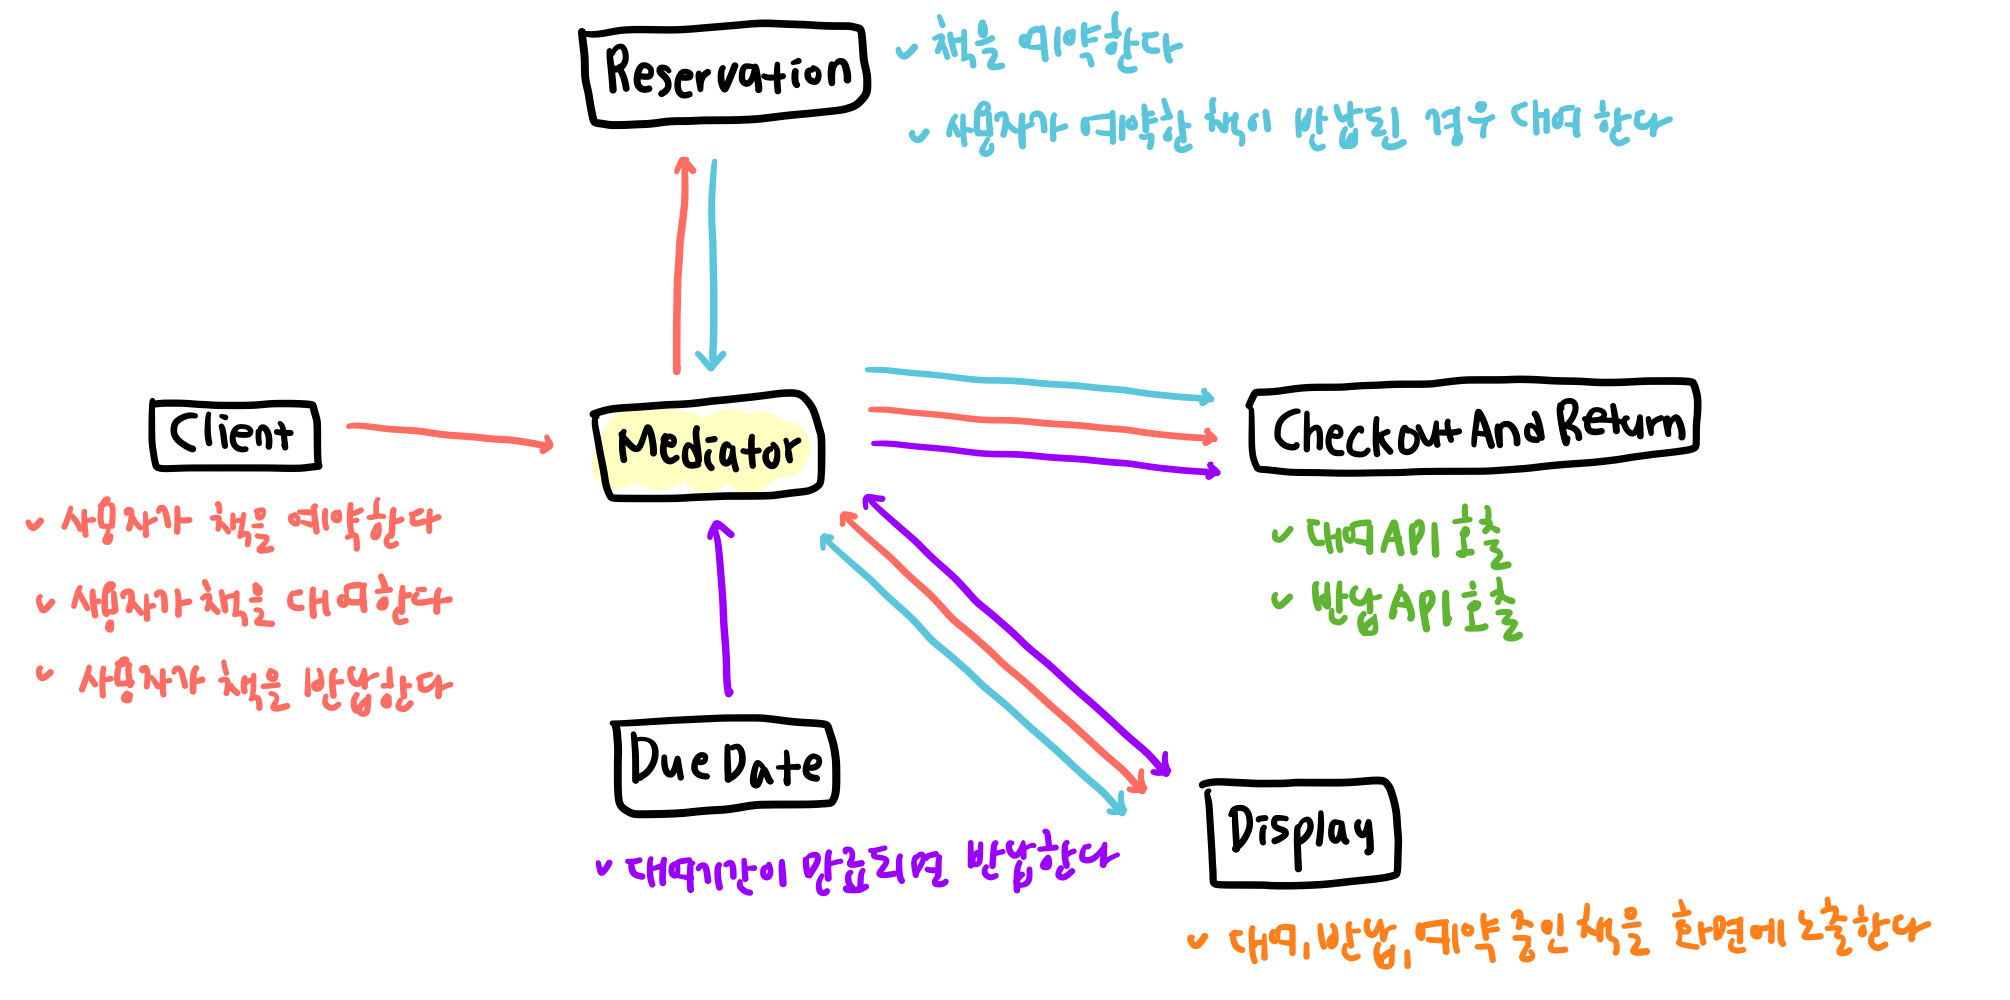 Reservation
✓ 책을 예약한다
✓ 사용자가 예약한 책이 반납된 경우 대여한다
Client
✓ 사용자가 책을 예약한다
✓ 사용자가 책을 대여한다
✓ 사용자가 책을 반납한다
Mediator
CheckoutAndReturn
✓ 대여API 호출
✓ 반납API 호출
Due Date
✓ 대여기간이 만료되면 반납한다
Display
✓ 대여,반납,예약 중인 책을 화면에 노출한다